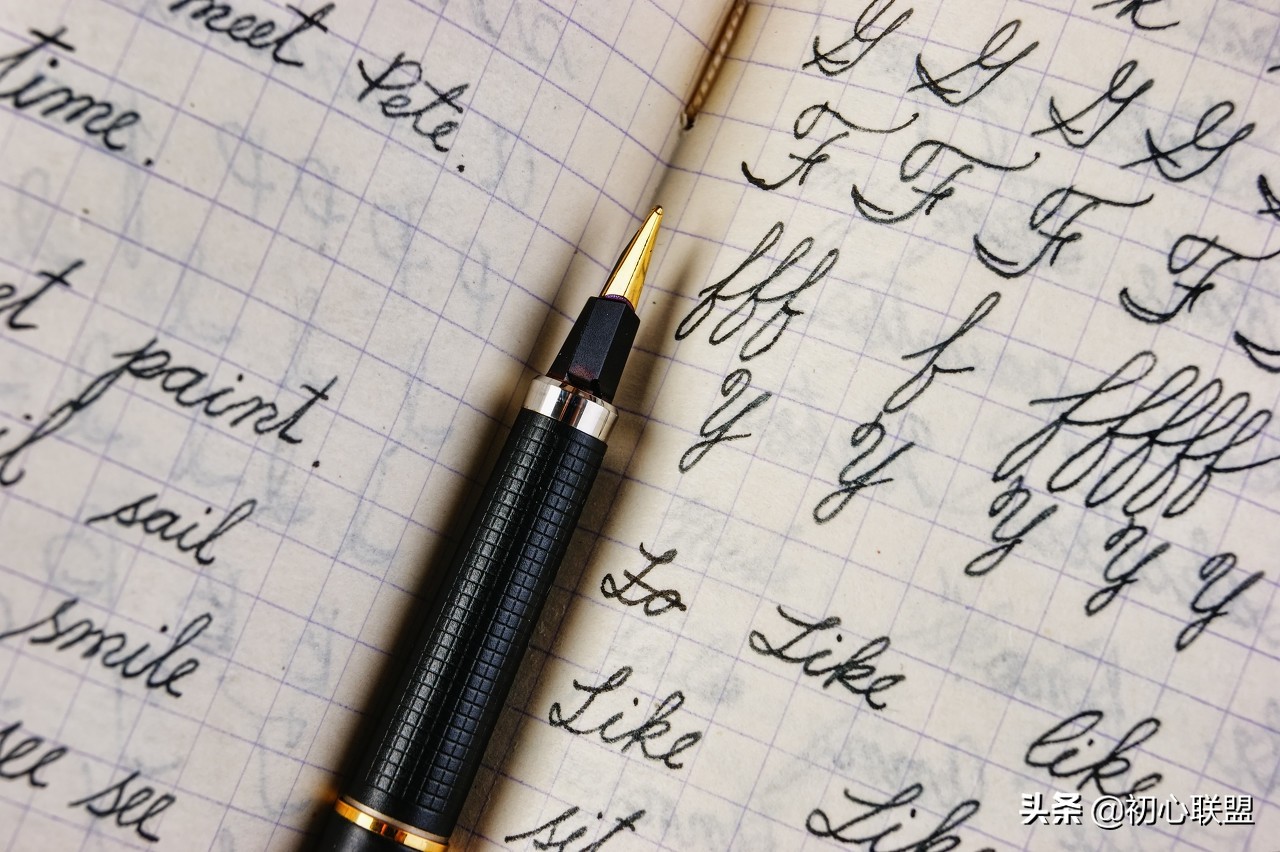 meet Pete.
time.
paint.
sail
smile
see
G G G G
F F F F
fff f fffff
Y Y Y Y Y
Lo Like
Like like
sit Like
头条 @初心联盟